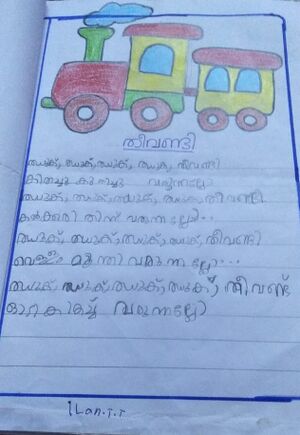 തീവണ്ടി
ഝുക്, ഝുക്, ഝുക്, ഝുക്, തീവണ്ടി
കിതച്ചു കുതിച്ചു വരുന്നല്ലോ
ഝുക്, ഝുക്, ഝുക്, ഝുക്, തീവണ്ടി
കൽക്കരി തിന്ന് വരുന്നല്ലോ...
ഝുക്, ഝുക്, ഝുക്, ഝുക്, തീവണ്ടി
വെള്ളം മോന്തി വരുന്നല്ലോ...
ഝുക്, ഝുക്, ഝുക്, ഝുക്, തീവണ്ടി
ഓടി കിതച്ച് വരുന്നല്ലോ
ILan.T.T